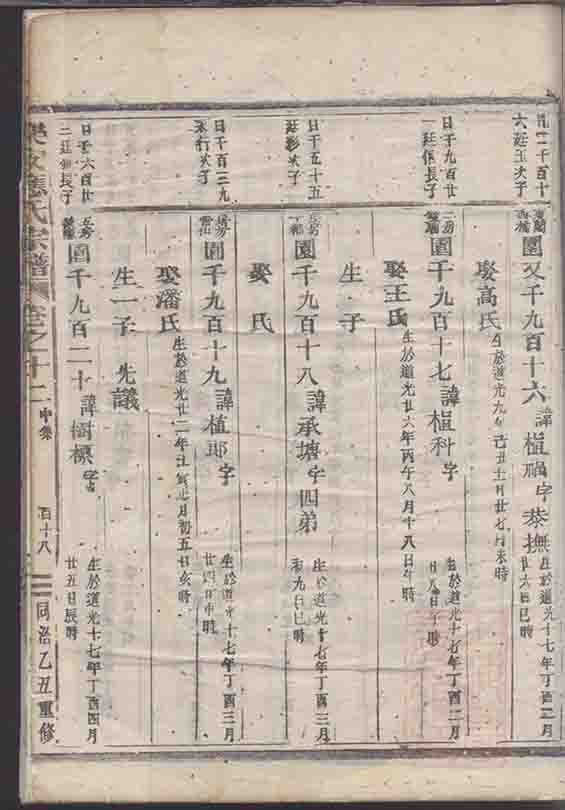 六廷玉次子
園又千九百十六 諱植禍字恭撫 生於道光十七年丁酉二月
廿六日巳時
娶高氏 生於道光九年己丑十一月廿七日未時
日千九百廿
一廷佩長子
園千九百十七 諱植科字 生於道光十七年丁酉二月
廿八日午時
娶王氏 生於道光廿六年丙午八月十八日午時
日千五十五
廷彭次子
園千九百十八 諱承塘字四弟 生於道光十七年丁酉三月
初九日巳時
生 子
娶 氏
日千百三九
永行次子
園千九百十九 諱植郎字 生於道光十七年丁酉三月
廿四日申時
娶潘氏 生於道光廿二年壬寅 月初五日亥時
生一子 先議
日千六百廿
二廷 長子
園千九百二十 諱樹標字 生於道光十七年丁酉四月
廿五日辰時
應氏宗譜 卷之十二 中集 百十八 同治乙丑重修